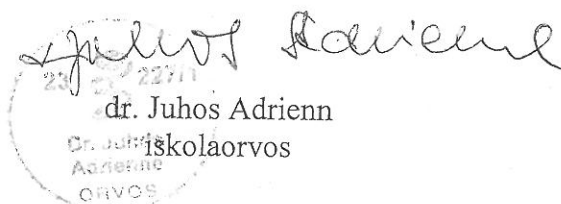 Juhos Adrienne
23 227/1
dr. Juhos Adrienn
iskolaorvos
Dr. Juhos
Adrienne
ORVOS